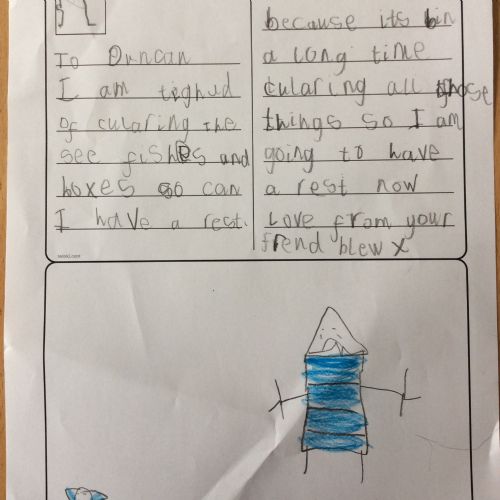 To Duncan
I am tighud
of cularing the
see fishes and
boxes so can
I have a rest.
because its bin
a long time
cularing all those
things so I am
going to have
a rest now
Love from your
frend blew x